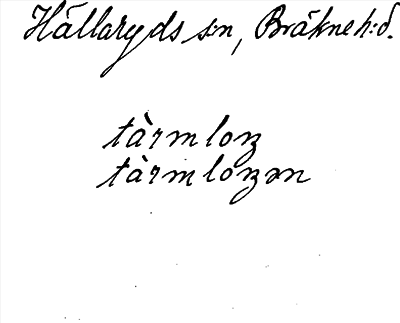 Hällaryds sn, Bräkne h:d.
tàrmloʒ
tàrmloʒən